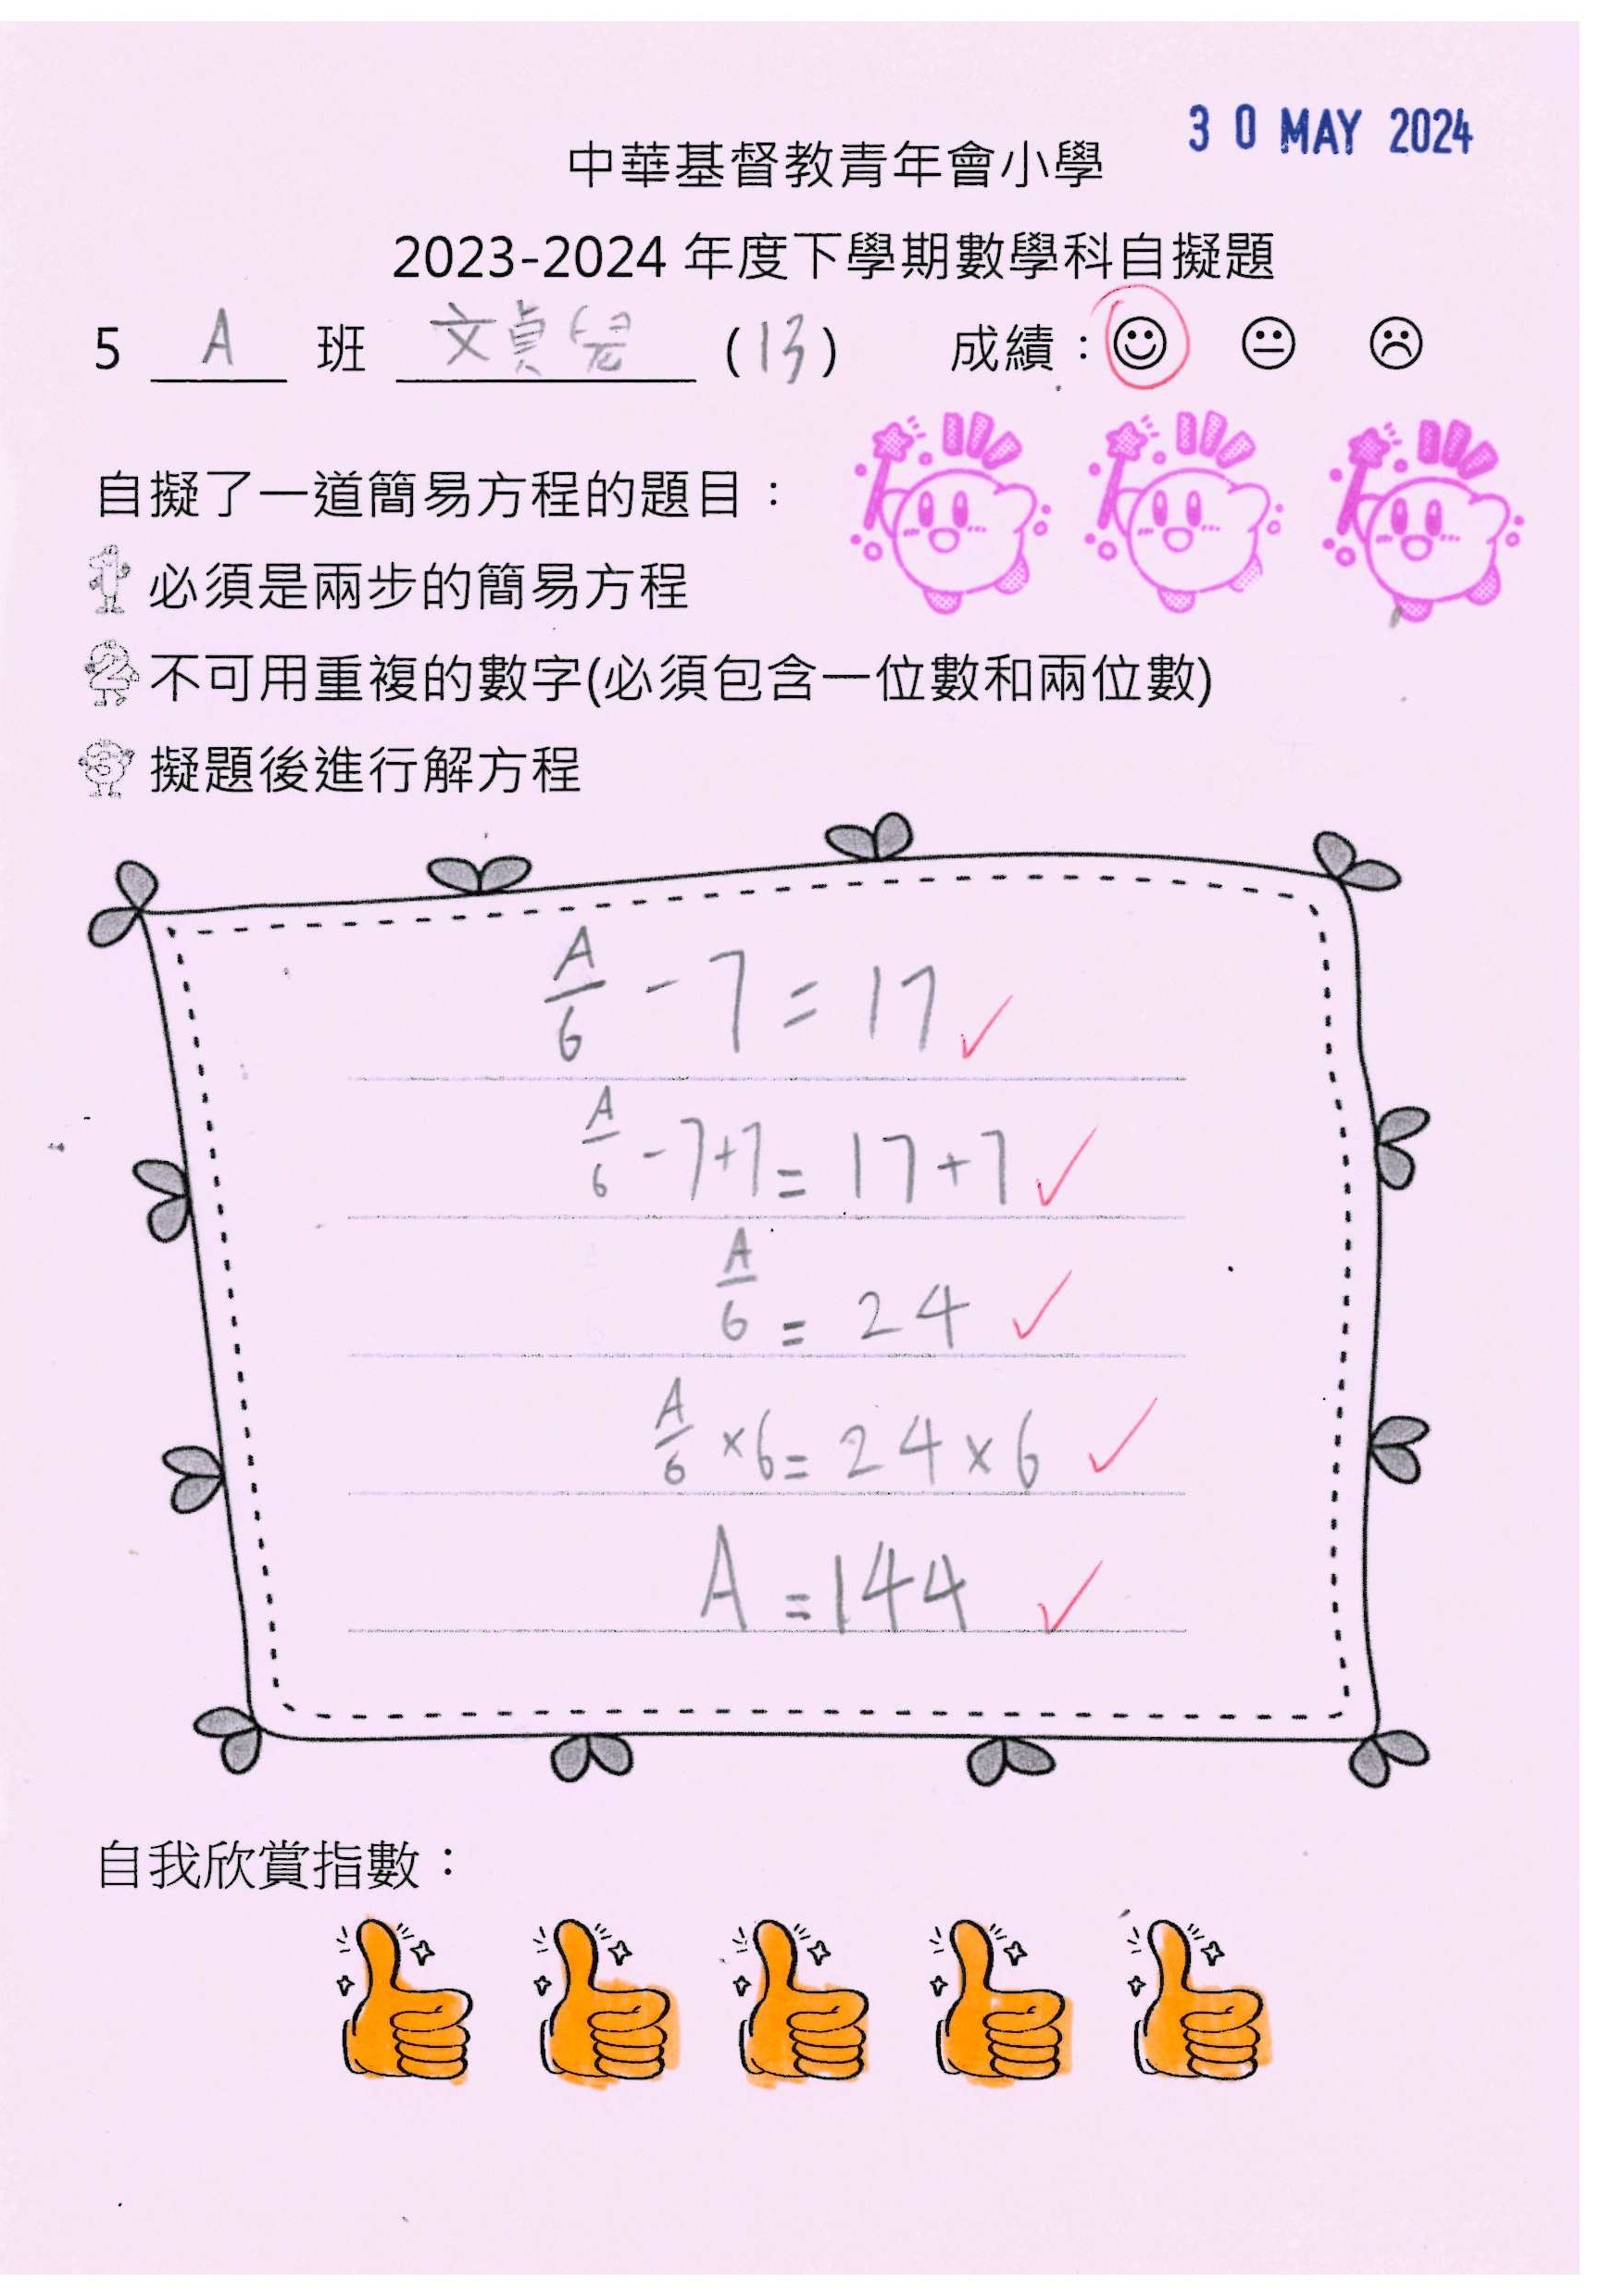 30 MAY 2024
中華基督教青年會小學
2023-2024 年度下學期數學科自擬題
5 A 班 文貞 (13) 成績：
自擬了一道簡易方程的題目：
1 必須是兩步的簡易方程
2 不可用重複的數字(必須包含一位數和兩位數)
3 擬題後進行解方程
A/6 - 7 = 17
A/6 - 7 + 7 = 17 + 7
A/6 = 24
A/6 × 6 = 24 × 6
A = 144
自我欣賞指數：